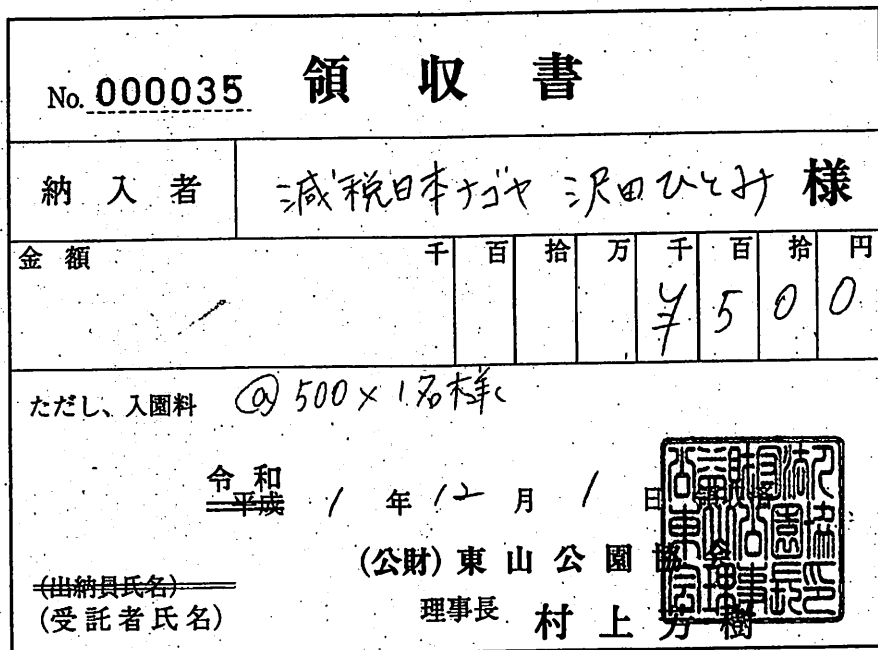 No. 000035 領収書
納入者 減税日本ナゴヤ 沢田ひとみ 様
金額 千 百 拾 万 千 百 拾 円
¥ 5 0 0
ただし、入園料 @ 500×1名様
令和
平成 1 年 12 月 1 日
(公財) 東山公園協会
(出納員氏名)
(受託者氏名) 理事長 村上芳樹